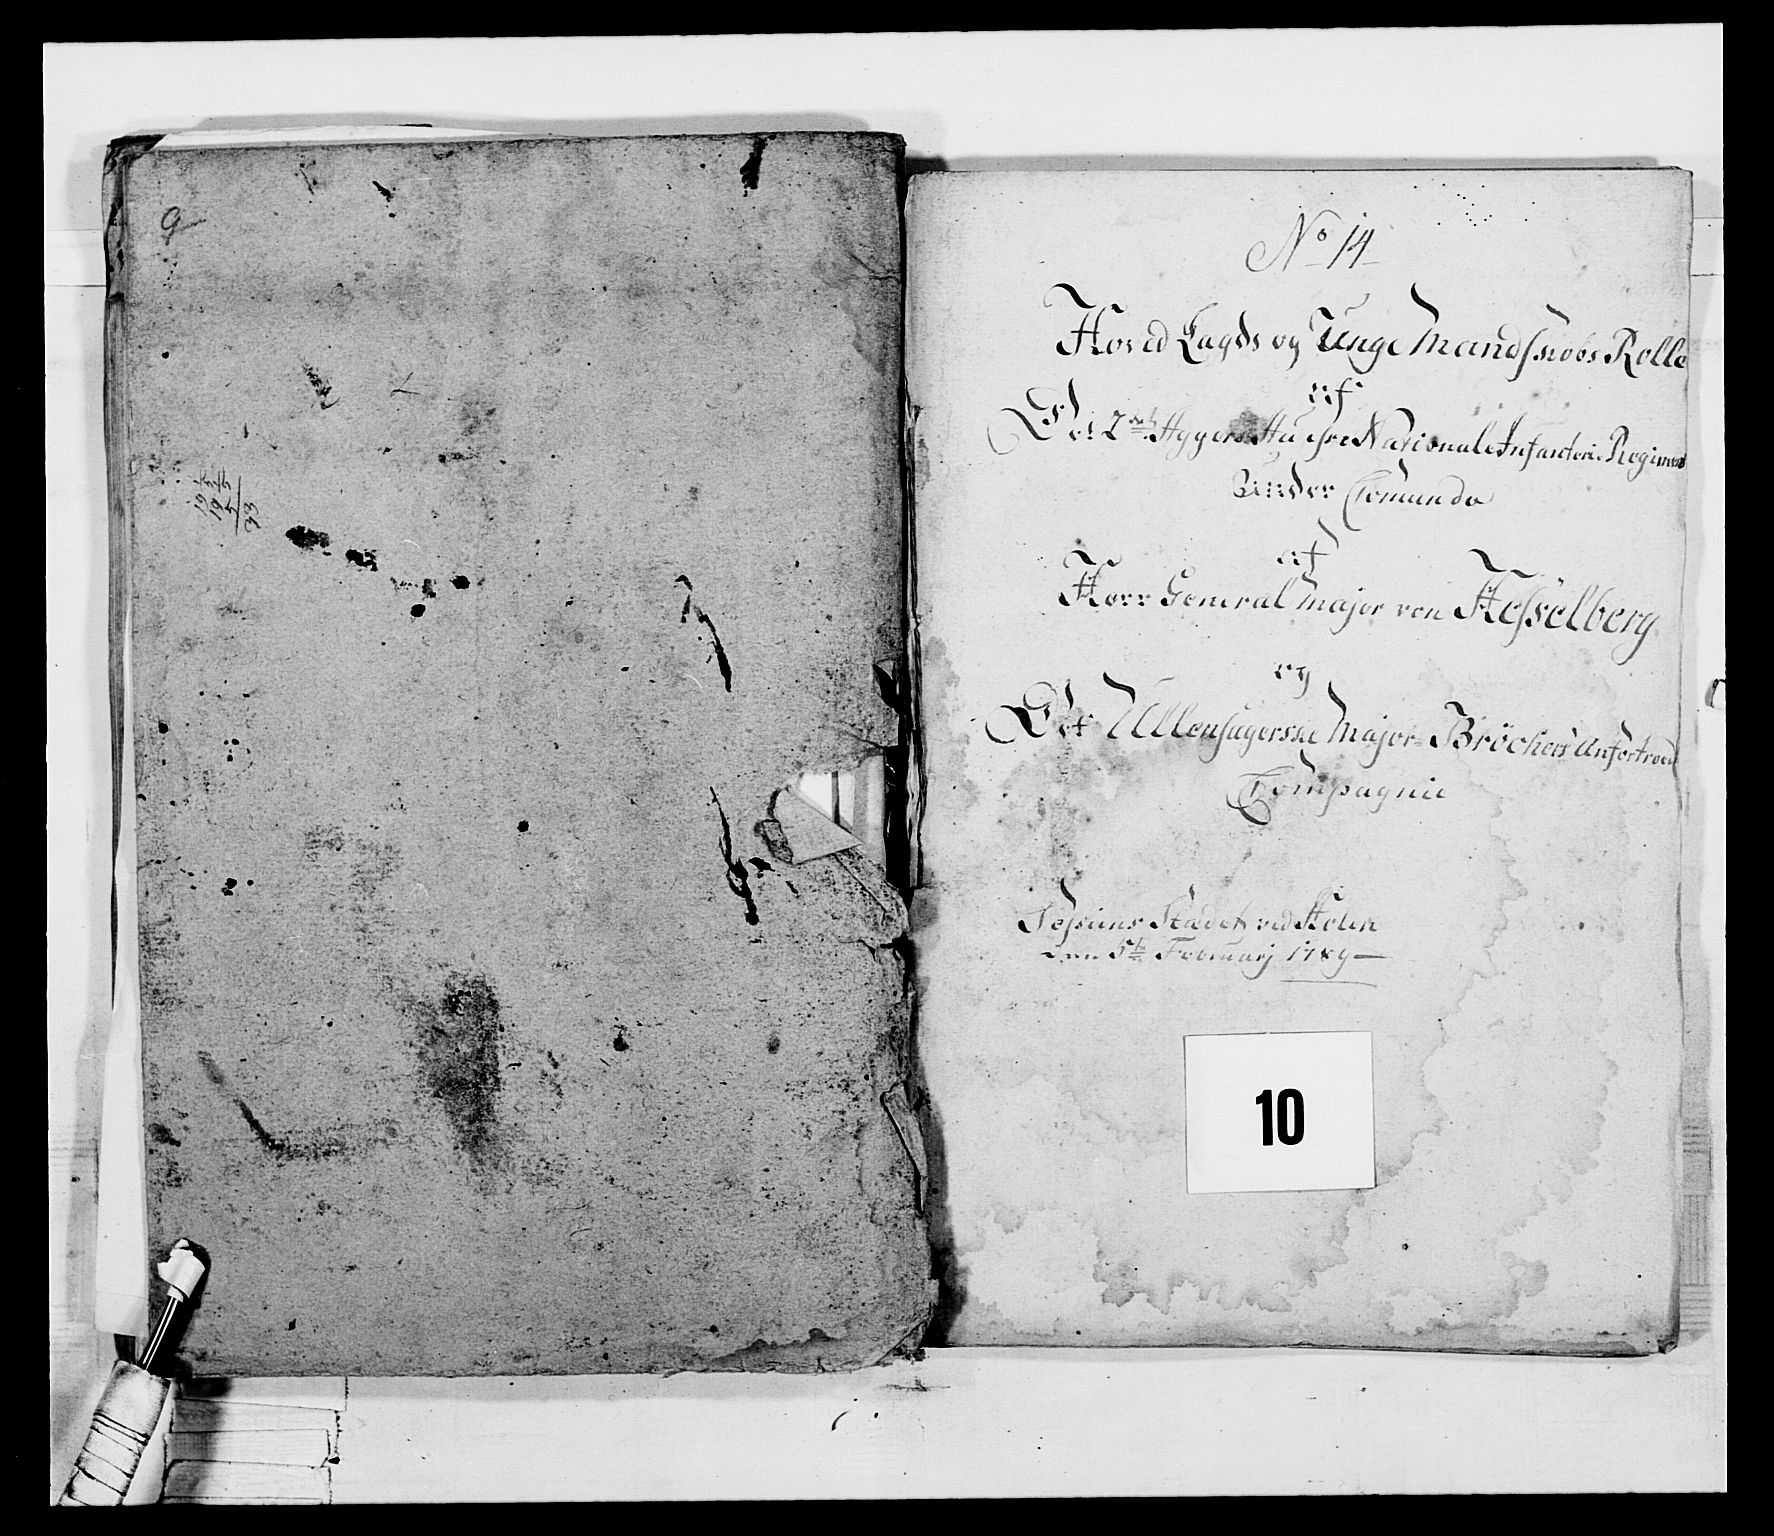 9
19
19
5
33
No 14
Hoved Lægds og Unge Mandskabs Rolle
af
Det 2det Aggershuusse Nationale Infanterie Regiment
Under Comando
af
Herr General Major von Hesselberg
og
Det Ullensagerske Major Bröchers Anfortroed
Compagnie
Sessions Stædet ved Holen
den 5te Februarj 1789
10